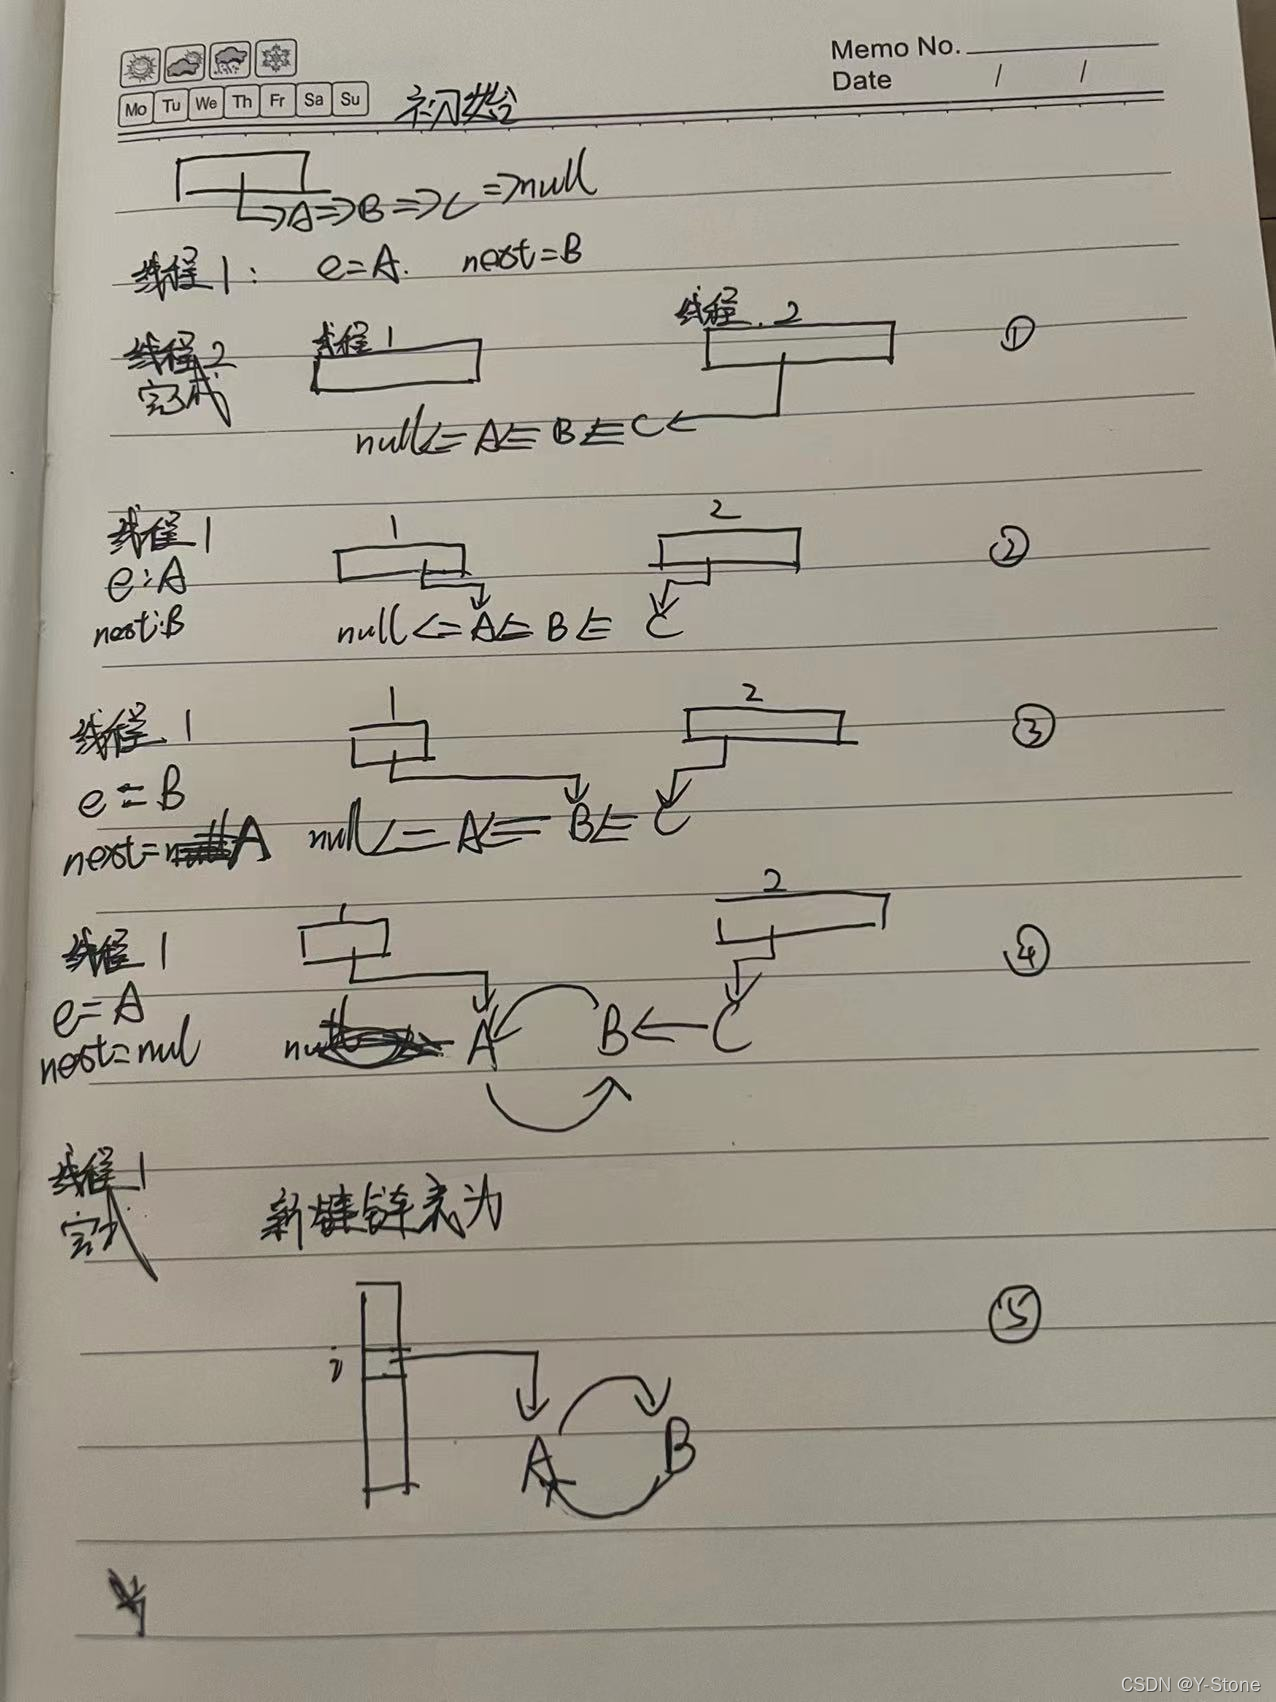 Memo No.
Date / /
Mo Tu We Th Fr Sa Su
初始
A=>B=>C=>null
线程1: e=A. next=B
线程2 线程1 线程.2 ①
完成
null<=A<=B<=C<
线程1 1 2 ②
e:A
next:B null<=A<=B<= C
线程.1 1 2 ③
e=B
next=A null<=A<=B<=C
线程1 1 2 ④
e=A
next=nul A B C
线程1
完成 新链表为
i ⑤
A B
CSDN @Y-Stone